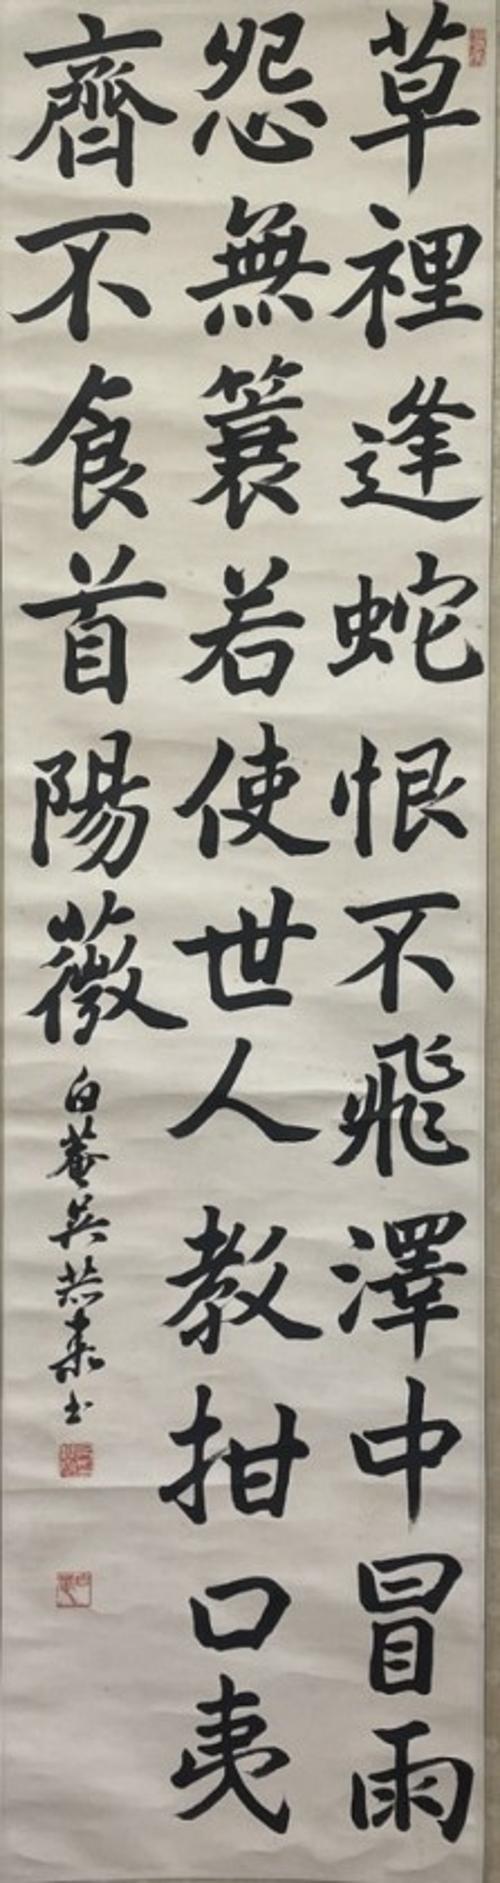 草裡逢蛇恨不飛澤中冒雨
怨無簑若使世人教拑口夷
齊不食首陽薇
白菴吳恭